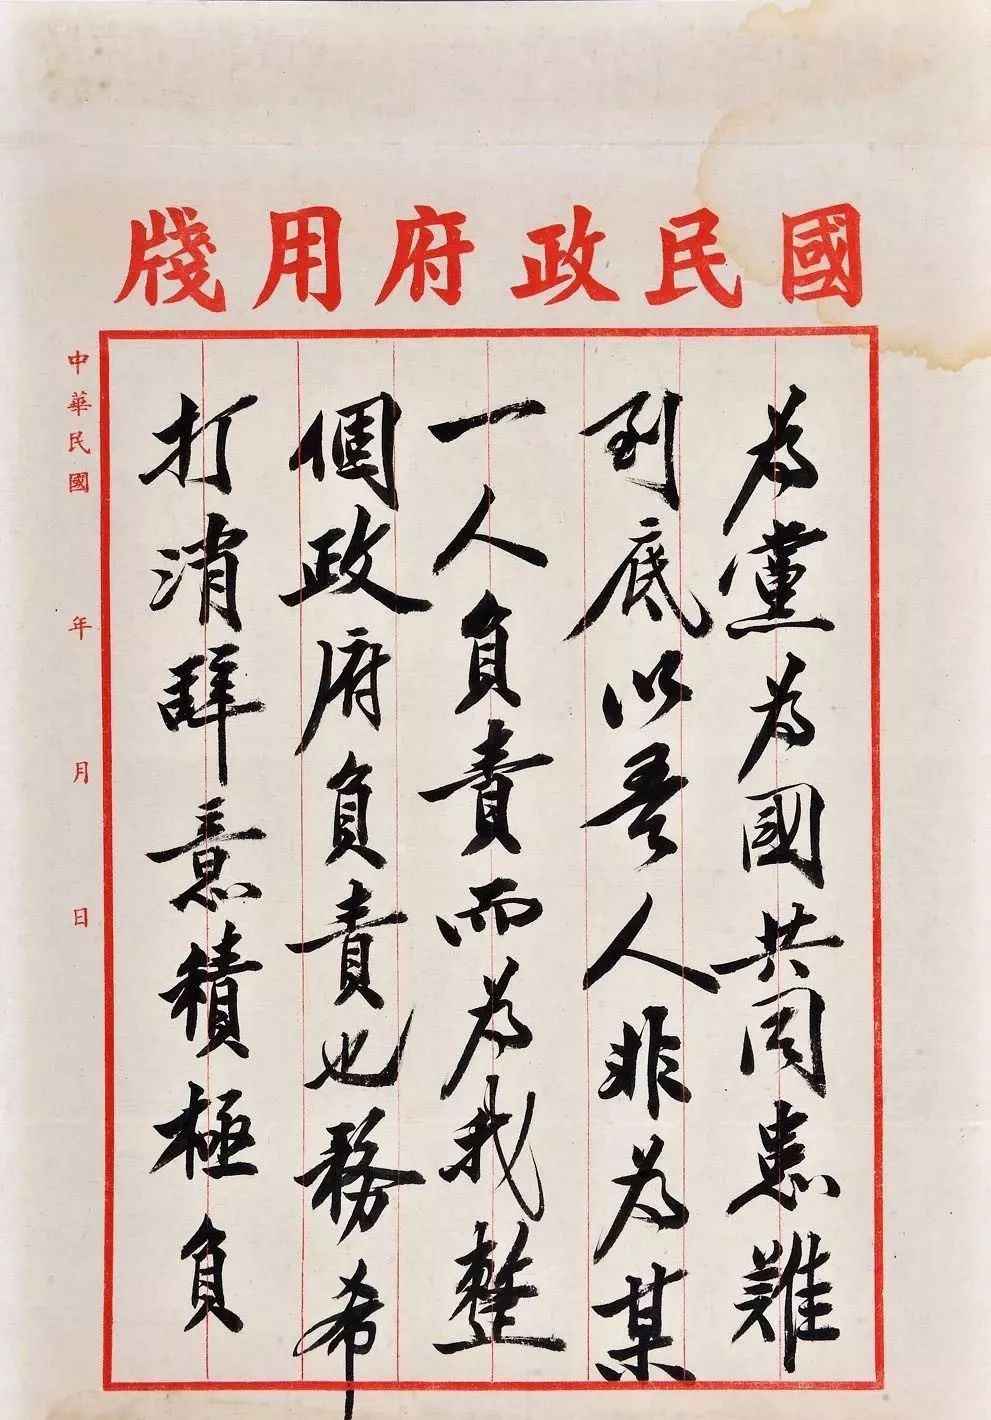 國民政府用牋
為黨為國共同患難
到底以吾人非為某
一人負責而為我整
個政府負責也務希
打消辭意積極負
中華民國 年 月 日